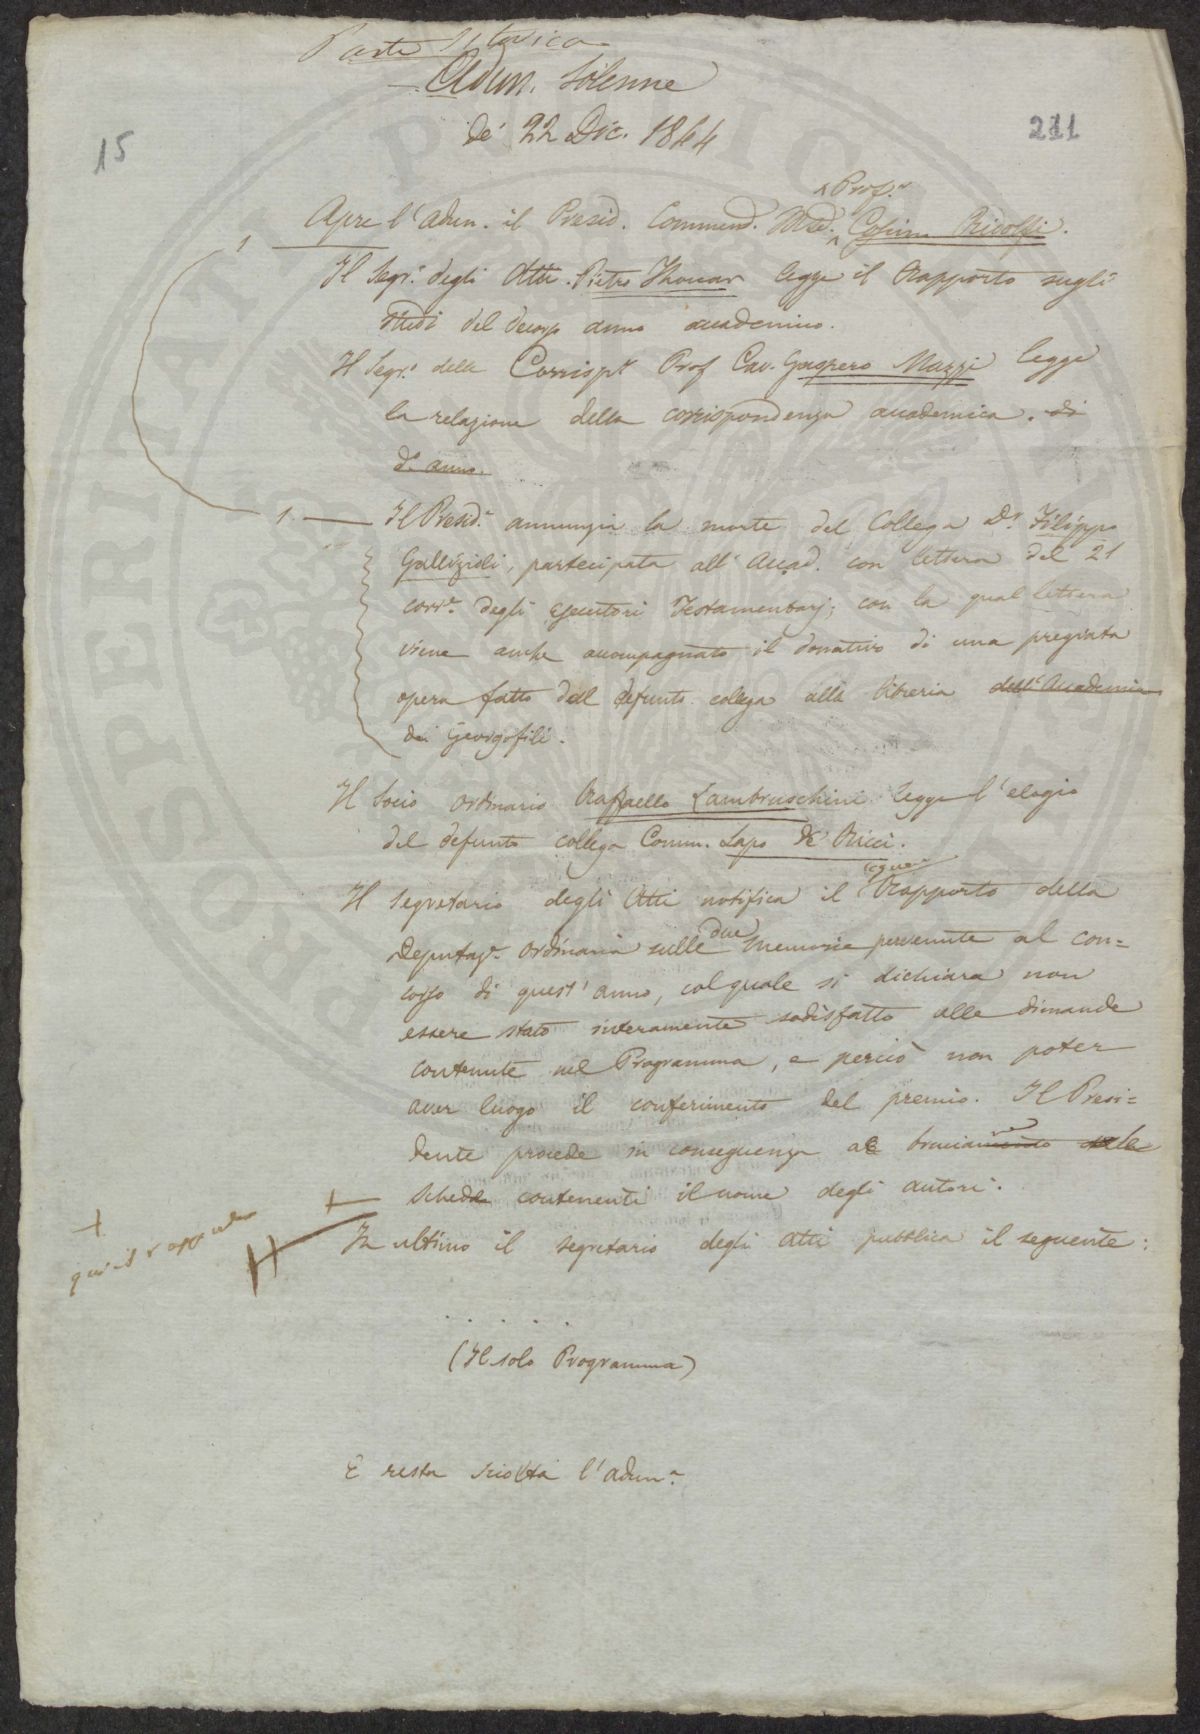 Parte Storica
Adun. Solenne
de' 22 Dic. 1844
15
211
Prof.r
Apre l'Adun. il Presid. Commend. March. Cosimo Ridolfi.
1
Il Segr.o degli Atti Pietro Thouar legge il Rapporto sugli
studi del decorso anno accademico.
Il Segr.o della Corrisp.a Prof Cav. Gaspero Mazzi legge
la relazione della corrispondenza accademica. di
d.o anno.
1 Il Presid.e annunzia la morte del Collega D.r Filippo
Gallizioli, partecipata all'Accad. con lettera del 21
corr.e degli Esecutori Testamentarj; con la qual lettera
viene anche accompagnato il donativo di una pregiata
opera fatto dal defunto collega alla libreria dell'Accademia
dei Georgofili.
Il Socio ordinario Raffaello Lambruschini legge l'elogio
del defunto collega Comm. Lapo de' Ricci.
segue
Il Segretario degli Atti notifica il Rapporto della
Deputaz.e ordinaria sulle due Memorie pervenute al con=
corso di quest'anno, col quale si dichiara non
essere stato interamente sodisfatto alle dimande
contenute nel Programma, e perciò non poter
aver luogo il conferimento del premio. Il Presi=
dente procede in conseguenza a bruciare le
schede contenenti il nome degli autori.
+
qui il rapporto
In ultimo il segretario degli Atti pubblica il seguente:
. . . . .
(Il solo Programma)
E resta sciolta l'adun.a
PROSPERITATI PUBLICAE AUGENDAE